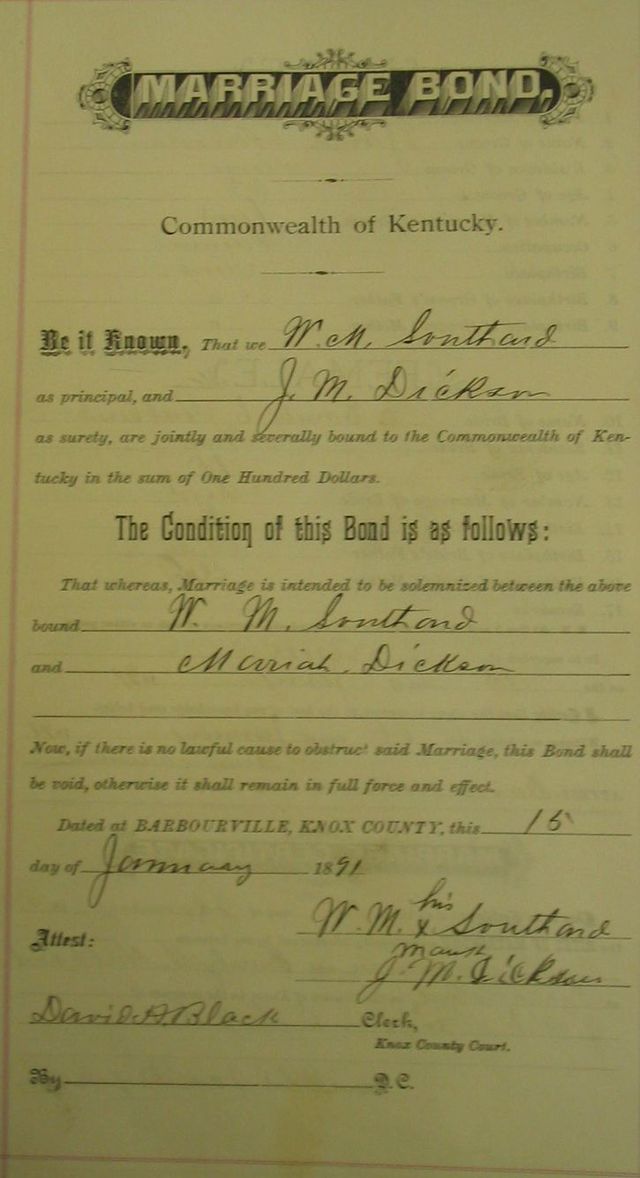 MARRIAGE BOND.
Commonwealth of Kentucky.
Be it Known, That we W. M. Southard
as principal, and J. M. Dickson
as surety, are jointly and severally bound to the Commonwealth of Ken-
tucky in the sum of One Hundred Dollars.
The Condition of this Bond is as follows:
That whereas, Marriage is intended to be solemnized between the above
bound W. M. Southard
and Marriah Dickson
Now, if there is no lawful cause to obstruct said Marriage, this Bond shall
be void, otherwise it shall remain in full force and effect.
Dated at BARBOURVILLE, KNOX COUNTY, this 15
day of January 1891
his
W. M. x Southard
Attest:
mark
J. M. Dickson
David A Black Clerk,
Knox County Court.
By D.C.